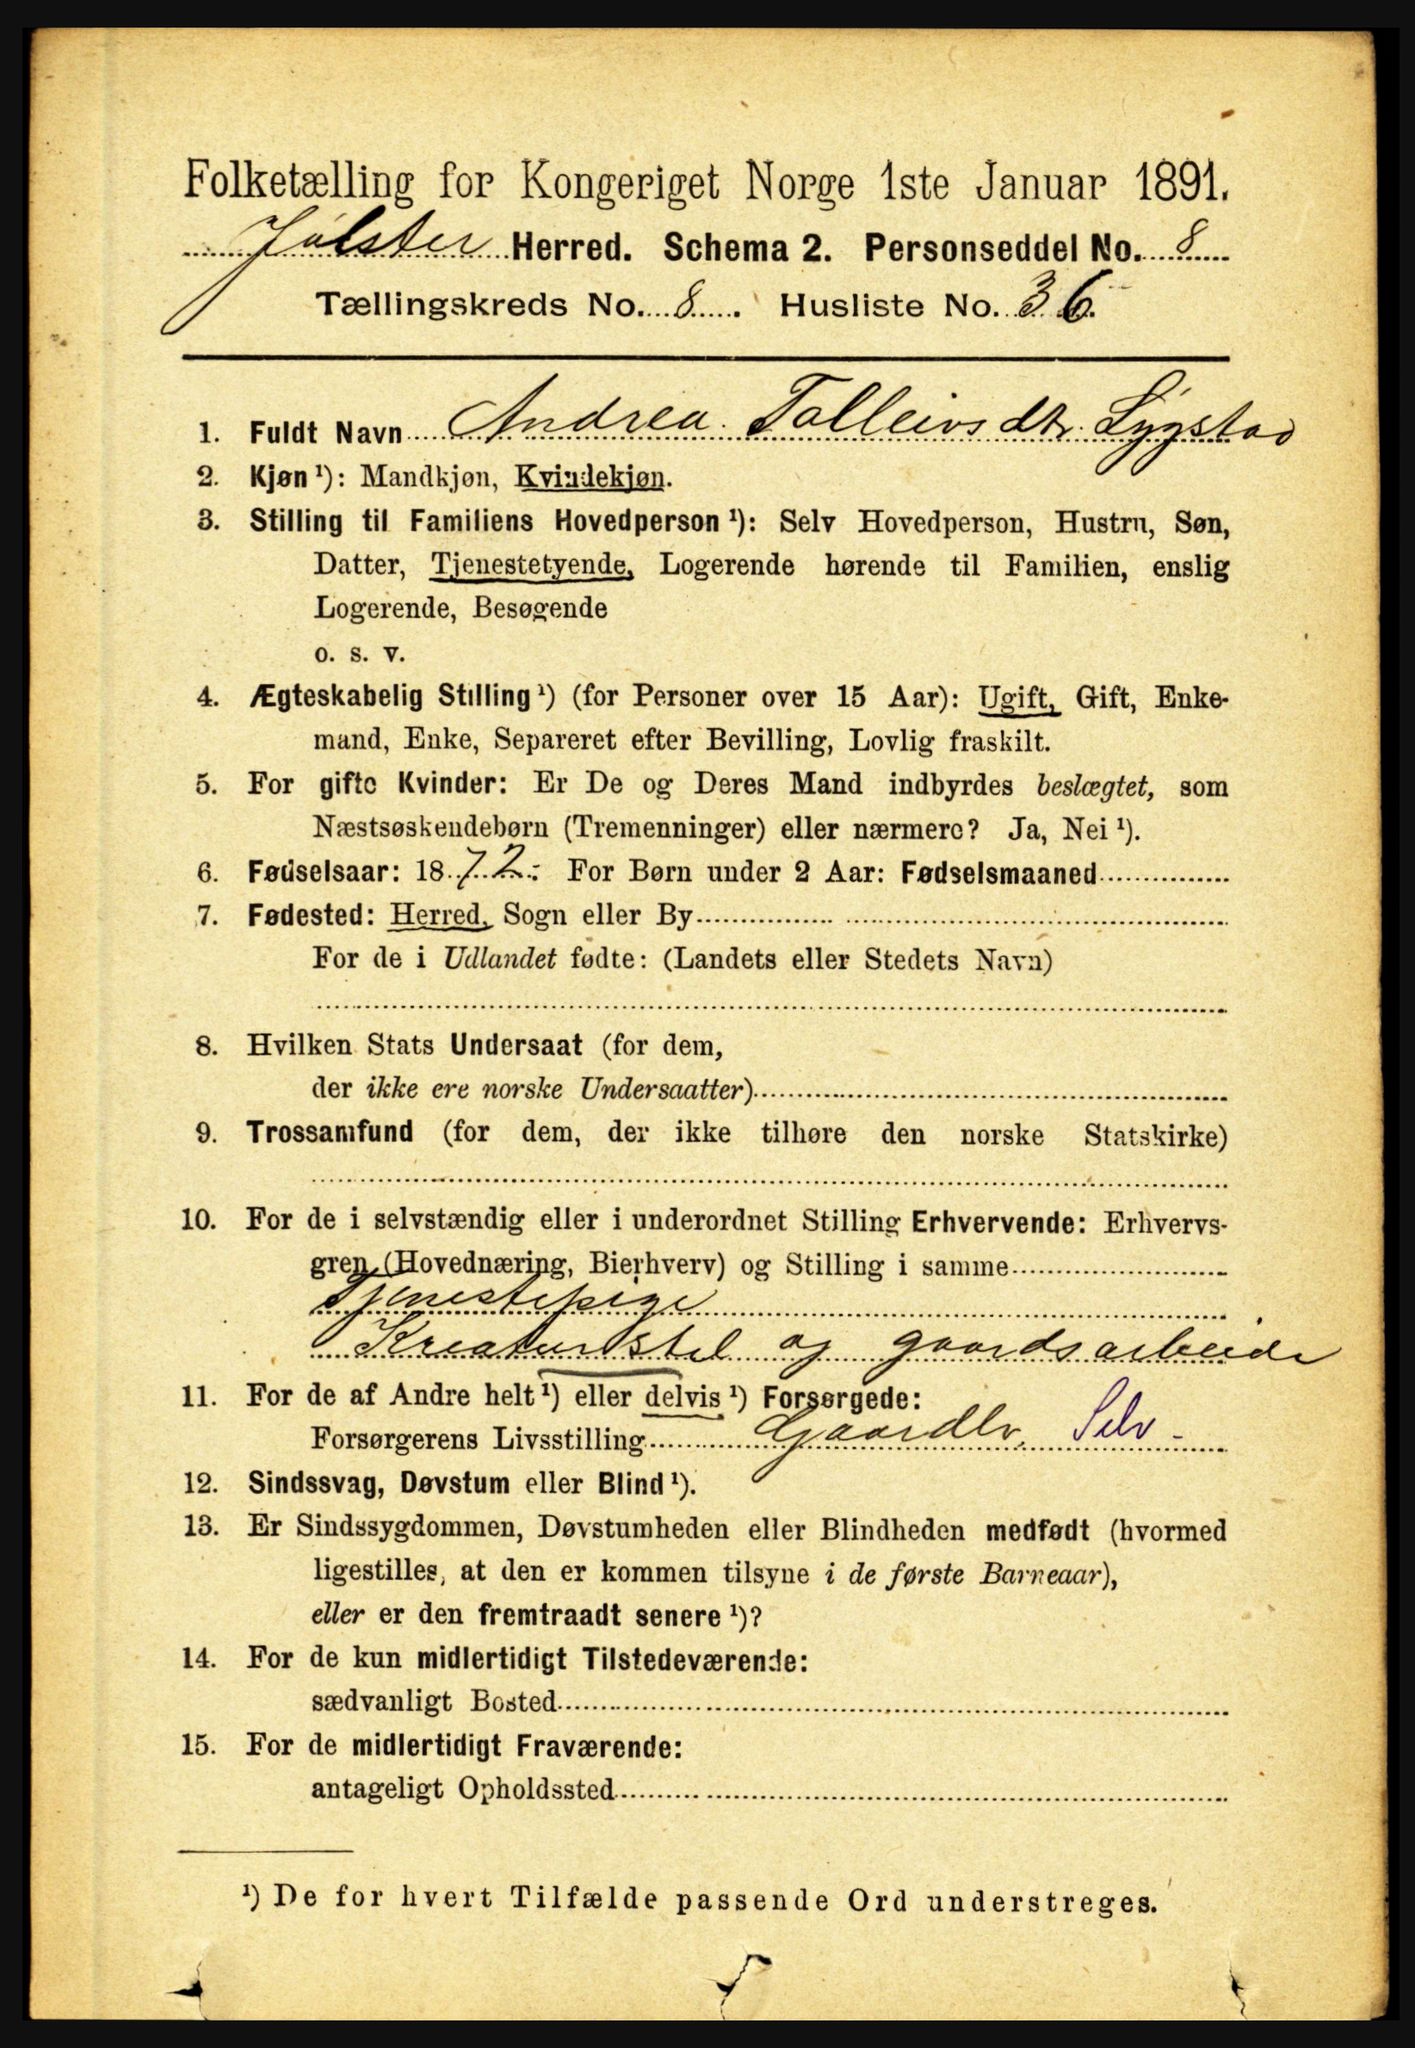 Folketælling for Kongeriget Norge 1ste Januar 1891.
Jølster Herred. Schema 2. Personseddel No. 8
Tællingskreds No. 8. Husliste No. 36.
1. Fuldt Navn Andrea Tolleivsdtr. Sygstad
2. Kjøn ¹): Mandkjøn, Kvindekjøn.
3. Stilling til Familiens Hovedperson ¹): Selv Hovedperson, Hustru, Søn,
Datter, Tjenestetyende, Logerende hørende til Familien, enslig
Logerende, Besøgende
o. s. v.
4. Ægteskabelig Stilling ¹) (for Personer over 15 Aar): Ugift, Gift, Enke-
mand, Enke, Separeret efter Bevilling, Lovlig fraskilt.
5. For gifte Kvinder: Er De og Deres Mand indbyrdes beslægtet, som
Næstsøskendebørn (Tremenninger) eller nærmere? Ja, Nei ¹).
6. Fødselsaar: 1872. For Børn under 2 Aar: Fødselsmaaned
7. Fødested: Herred, Sogn eller By
For de i Udlandet fødte: (Landets eller Stedets Navn)
8. Hvilken Stats Undersaat (for dem,
der ikke ere norske Undersaatter)
9. Trossamfund (for dem, der ikke tilhøre den norske Statskirke)
10. For de i selvstændig eller i underordnet Stilling Erhvervende: Erhvervs-
gren (Hovednæring, Bierhverv) og Stilling i samme
Tjenestepige
Kreaturstel og gaardsarbeide
11. For de af Andre helt ¹) eller delvis ¹) Forsørgede:
Forsørgerens Livsstilling Gaardbr. Selv
12. Sindssvag, Døvstum eller Blind ¹).
13. Er Sindssygdommen, Døvstumheden eller Blindheden medfødt (hvormed
ligestilles, at den er kommen tilsyne i de første Barneaar),
eller er den fremtraadt senere ¹)?
14. For de kun midlertidigt Tilstedeværende:
sædvanligt Bosted
15. For de midlertidigt Fraværende:
antageligt Opholdssted
¹) De for hvert Tilfælde passende Ord understreges.